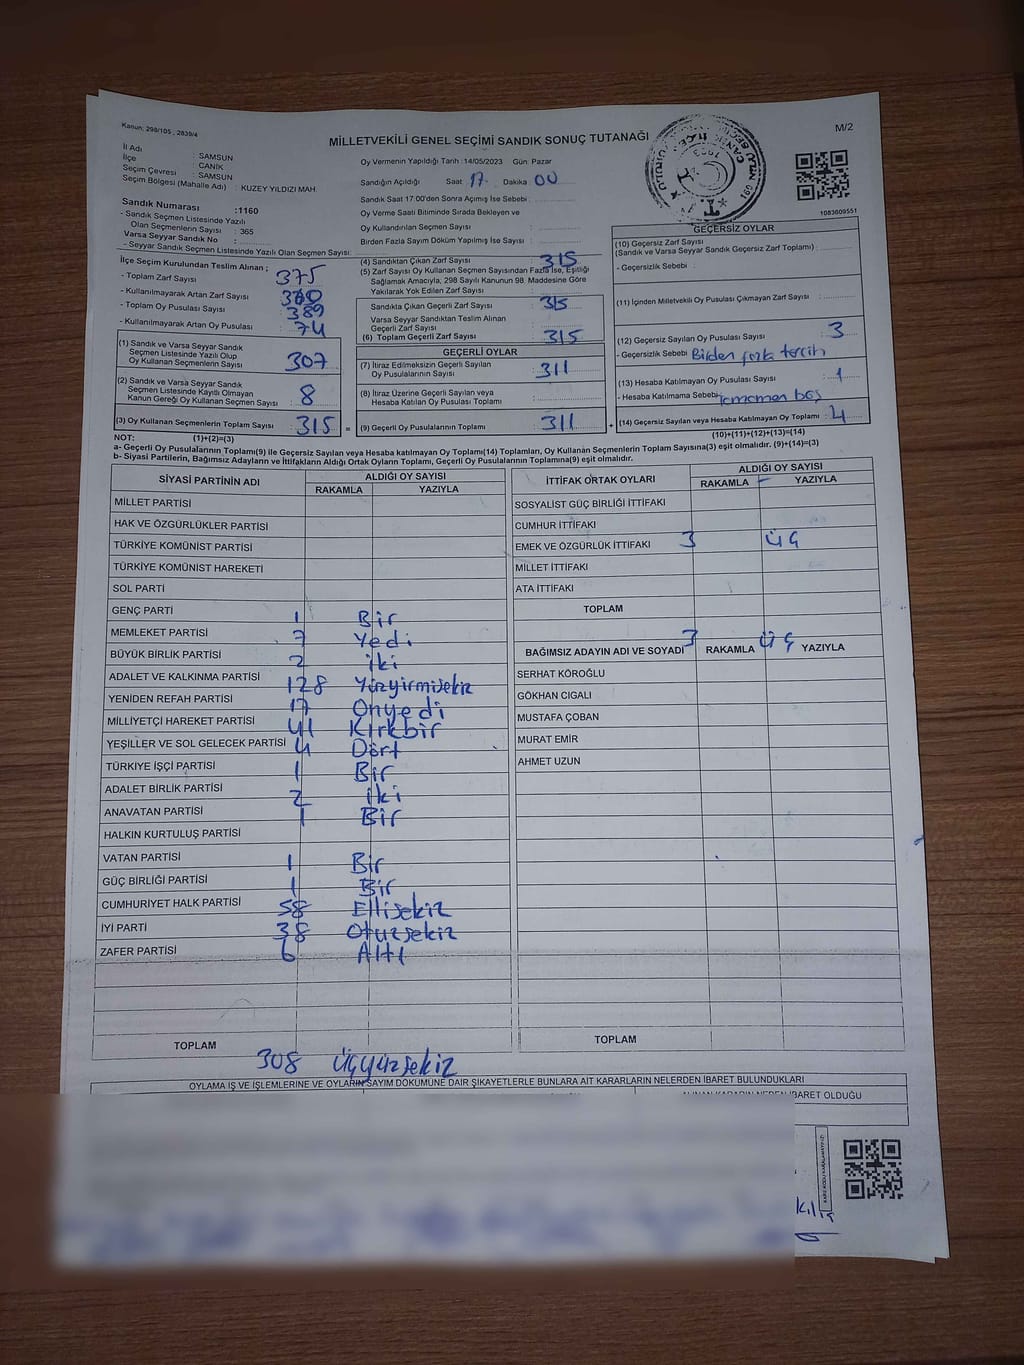 Kanun; 298/105 , 2839/4
MİLLETVEKİLİ GENEL SEÇİMİ SANDIK SONUÇ TUTANAĞI
M/2
İl Adı : SAMSUN
İlçe : CANİK
Seçim Çevresi : SAMSUN
Seçim Bölgesi (Mahalle Adı) : KUZEY YILDIZI MAH.
Oy Vermenin Yapıldığı Tarih :14/05/2023 Gün: Pazar
Sandığın Açıldığı Saat 17 Dakika 00
Sandık Saat 17:00'den Sonra Açımış İse Sebebi
Oy Verme Saati Bitiminde Sırada Bekleyen ve
Oy Kullandırılan Seçmen Sayısı :
Birden Fazla Sayım Döküm Yapılmış İse Sayısı :
1083609551
Sandık Numarası :1160
- Sandık Seçmen Listesinde Yazılı
Olan Seçmenlerin Sayısı : 365
Varsa Seyyar Sandık No :
- Seyyar Sandık Seçmen Listesinde Yazılı Olan Seçmen Sayısı:
İlçe Seçim Kurulundan Teslim Alınan ;
- Toplam Zarf Sayısı : 375
- Kullanılmayarak Artan Zarf Sayısı
- Toplam Oy Pusulası Sayısı : 389
- Kullanılmayarak Artan Oy Pusulası : 74
(1) Sandık ve Varsa Seyyar Sandık
Seçmen Listesinde Yazılı Olup
Oy Kullanan Seçmenlerin Sayısı : 307
(2) Sandık ve Varsa Seyyar Sandık
Seçmen Listesinde Kayıtlı Olmayan
Kanun Gereği Oy Kullanan Seçmen Sayısı : 8
(3) Oy Kullanan Seçmenlerin Toplam Sayısı : 315 =
(4) Sandıktan Çıkan Zarf Sayısı : 315
(5) Zarf Sayısı Oy Kullanan Seçmen Sayısından Fazla İse, Eşitliği
Sağlamak Amacıyla, 298 Sayılı Kanunun 98. Maddesine Göre
Yakılarak Yok Edilen Zarf Sayısı :
Sandıkta Çıkan Geçerli Zarf Sayısı : 315
Varsa Seyyar Sandıktan Teslim Alınan
Geçerli Zarf Sayısı :
(6) Toplam Geçerli Zarf Sayısı : 315
GEÇERLİ OYLAR
(7) İtiraz Edilmeksizin Geçerli Sayılan
Oy Pusulalarının Sayısı : 311
(8) İtiraz Üzerine Geçerli Sayılan veya
Hesaba Katılan Oy Pusulası Toplamı :
(9) Geçerli Oy Pusulalarının Toplamı : 311 +
GEÇERSİZ OYLAR
(10) Geçersiz Zarf Sayısı
(Sandık ve Varsa Sandık Geçersiz Zarf Toplamı) :
- Geçersizlik Sebebi :
(11) İçinden Milletvekili Oy Pusulası Çıkmayan Zarf Sayısı :
(12) Geçersiz Sayılan Oy Pusulası Sayısı : 3
- Geçersizlik Sebebi Birden fazla tercih
(13) Hesaba Katılmayan Oy Pusulası Sayısı : 1
- Hesaba Katılmama Sebebi tamamen boş
(14) Geçersiz Sayılan veya Hesaba Katılmayan Oy Toplamı : 4
NOT: (1)+(2)=(3)
(10)+(11)+(12)+(13)=(14)
a- Geçerli Oy Pusulalarının Toplamı(9) ile Geçersiz Sayılan veya Hesaba katılmayan Oy Toplamı(14) Toplamları, Oy Kullanan Seçmenlerin Toplam Sayısına(3) eşit olmalıdır. (9)+(14)=(3)
b- Siyasi Partilerin, Bağımsız Adayların ve İttifakların Aldığı Ortak Oyların Toplamı, Geçerli Oy Pusulalarının Toplamına(9) eşit olmalıdır.
SİYASİ PARTİNİN ADI ALDIĞI OY SAYISI
RAKAMLA YAZIYLA
MİLLET PARTİSİ
HAK VE ÖZGÜRLÜKLER PARTİSİ
TÜRKİYE KOMÜNİST PARTİSİ
TÜRKİYE KOMÜNİST HAREKETİ
SOL PARTİ
GENÇ PARTİ 1 Bir
MEMLEKET PARTİSİ 7 Yedi
BÜYÜK BİRLİK PARTİSİ 2 iki
ADALET VE KALKINMA PARTİSİ 128 Yüzyirmisekiz
YENİDEN REFAH PARTİSİ 17 Onyedi
MİLLİYETÇİ HAREKET PARTİSİ 41 Kırkbir
YEŞİLLER VE SOL GELECEK PARTİSİ 4 Dört
TÜRKİYE İŞÇİ PARTİSİ 1 Bir
ADALET BİRLİK PARTİSİ 2 iki
ANAVATAN PARTİSİ 1 Bir
HALKIN KURTULUŞ PARTİSİ
VATAN PARTİSİ 1 Bir
GÜÇ BİRLİĞİ PARTİSİ 1 Bir
CUMHURİYET HALK PARTİSİ 58 Ellisekiz
İYİ PARTİ 38 Otuzsekiz
ZAFER PARTİSİ 6 Altı
TOPLAM 308 Üçyüzsekiz
İTTİFAK ORTAK OYLARI ALDIĞI OY SAYISI
RAKAMLA YAZIYLA
SOSYALİST GÜÇ BİRLİĞİ İTTİFAKI
CUMHUR İTTİFAKI
EMEK VE ÖZGÜRLÜK İTTİFAKI 3 Üç
MİLLET İTTİFAKI
ATA İTTİFAKI
TOPLAM 3 Üç
BAĞIMSIZ ADAYIN ADI VE SOYADI RAKAMLA YAZIYLA
SERHAT KÖROĞLU
GÖKHAN CIGALI
MUSTAFA ÇOBAN
MURAT EMİR
AHMET UZUN
TOPLAM
OYLAMA İŞ VE İŞLEMLERİNE VE OYLARIN SAYIM DÖKÜMÜNE DAİR ŞİKAYETLERLE BUNLARA AİT KARARLARIN NELERDEN İBARET BULUNDUKLARI
ALINAN KARARIN NEDEN İBARET OLDUĞU